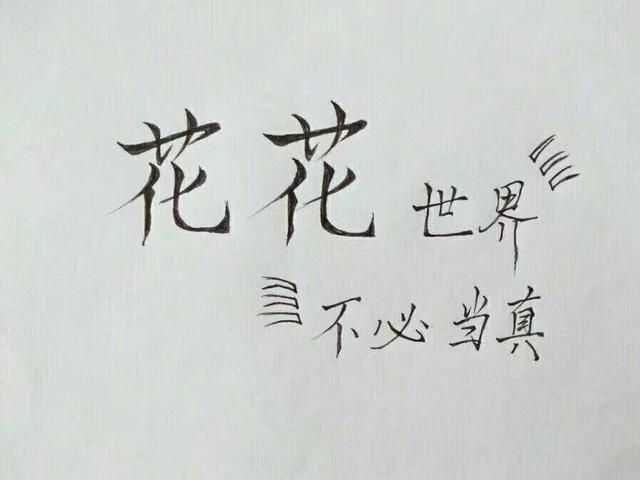 花花世界
不必当真